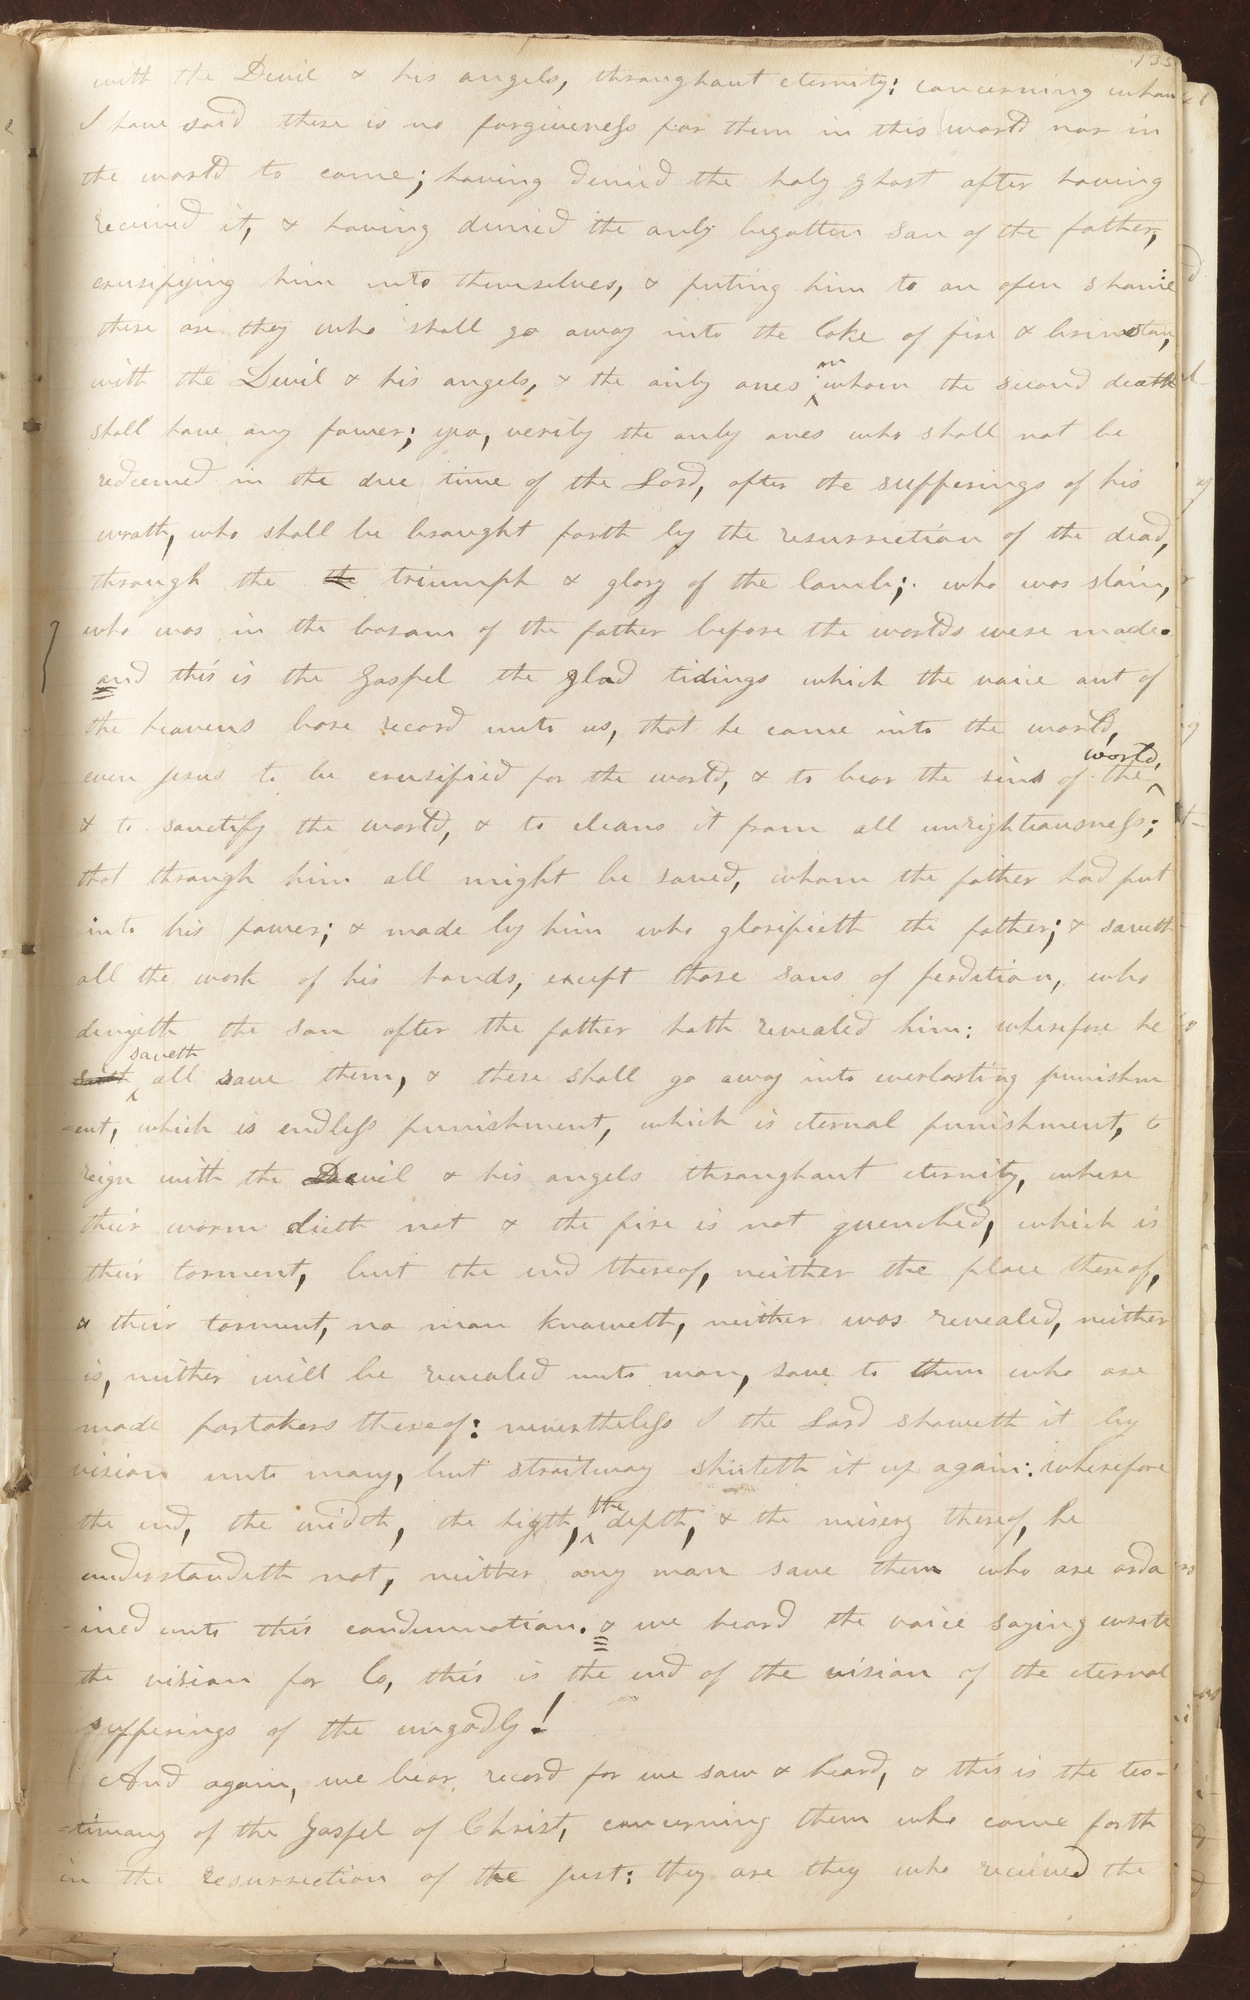 133
with the Devil & his angels, throughout eternity: concerning whom
I have said there is no forgiveness for them in this world nor in
the world to come; having denied the holy ghost after having
received it, & having denied the only begotten son of the father,
crusifying him unto themselves, & puting him to an open shame:
these are they who shall go away into the lake of fire & brimstone,
with the Devil & his angels, & the only ones on whom the second death
shall have any power; yea, verily the only ones who shall not be
redeemed in the due time of the Lord, after the sufferings of his
wrath, who shall be braught forth by the resurrection of the dead,
through the th triumph & glory of the lamb; who was slain,
who was in the bosom of the father before the worlds were made.
and this is the Gospel the glad tidings which the voice out of
the heavens bore record unto us, that he came into the world,
even Jesus to be crusified for the world, & to bear the sins of the world,
& to sanctify the world, & to cleans it from all unrightiousness;
that through him all might be saved, whom the father had put
into his power; & made by him who glorifieth the father; & saveth
all the work of his hands, except those sons of perdition, who
denyeth the son after the father hath revealed him: wherefore he
saith saveth all save them, & these shall go away into everlasting punishm
=ent, which is endless punishment, which is eternal punishment, to
reign with the Devil & his angels throughout eternity, where
their worm dieth not & the fire is not quenched, which is
their torment, but the end thereof, neither the place thereof,
& their torment, no man knoweth, neither was revealed, neither
is, neither will be revealed unto man, save to them who are
made partakers thereof: nevertheless I the Lord showeth it by
vision unto many, but straitway shuteth it up again: wherefore
the end, the width, the higth, the depth, & the misery thereof, he
understandeth not, neither any man save them who are orda
=ined unto this condemnation. & we heard the voice saying write
the vision for lo, this is the end of the vision of the eternal
sufferings of the ungodly!
And again, we bear record for we saw & heard, & this is the tes-
=timony of the Gospel of Christ, concerning them who come forth
in the resurrection of the just: they are they who received the